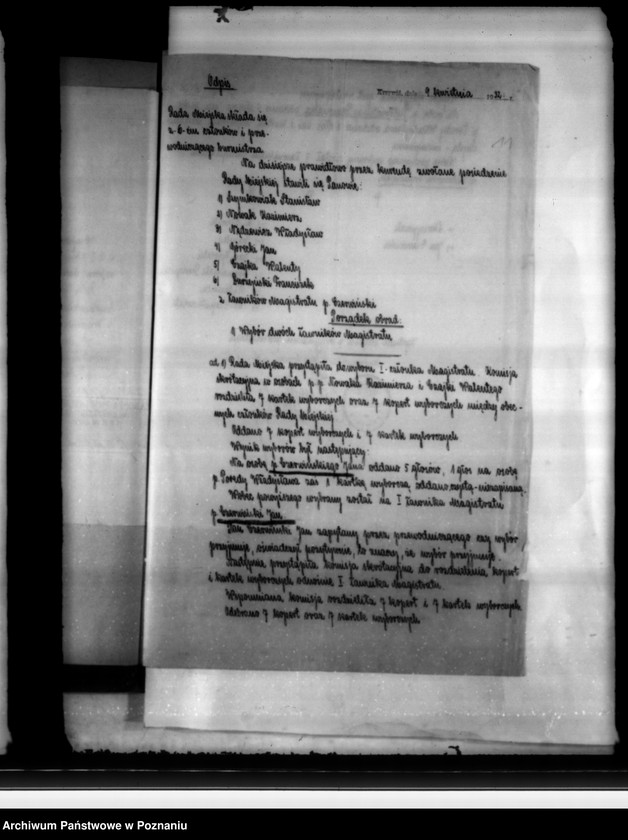 Odpis
dnia 9 kwietnia 1932 r.
11
Rada Miejska składa się
z 6-ciu członków i prze-
wodniczącego burmistrza
Na dzisiejsze prawidłowo przez kurendę zwołane posiedzenie
Rady Miejskiej stawili się Panowie:
1) Szymkowiak Stanisław
2) Nowak Kazimierz
3) Władysław
4) Górski Jan
5) Czajka Walenty
6) Franciszek
z ławników Magistratu p. Czerwiński
Porządek obrad:
1 Wybór dwóch ławników Magistratu
ad. 1) Rada Miejska przystąpiła do wyboru I. członka Magistratu. Komisja
skrutacyjna w osobach p.p. Nowaka Kazimierza i Czajki Walentego
rozdzieliła 7 kartek wyborczych oraz 7 kopert wyborczych między obec-
nych członków Rady Miejskiej
Oddano 7 kopert wyborczych i 7 kartek wyborczych
Wynik wyborów był następujący:
Na osobę p. Czerwińskiego Jana oddano 5 głosów, 1 głos na osobę
p. Władysława zaś 1 kartkę wyborczą oddano czystą-niezapisaną.
Wobec powyższego wybrany został na I ławnika Magistratu
p. Czerwiński Jan.
Pan Czerwiński Jan zapytany przez przewodniczącego czy wybór
przyjmuje, oświadczył pozytywnie, to znaczy, że wybór przyjmuje.
Następnie przystąpiła komisja skrutacyjna do rozdzielenia kopert
i kartek wyborczych odnośnie I. ławnika Magistratu.
Wspomniana komisja rozdzieliła 7 kopert i 7 kartek wyborczych
Odebrano 7 kopert oraz 7 kartek wyborczych.
Archiwum Państwowe w Poznaniu